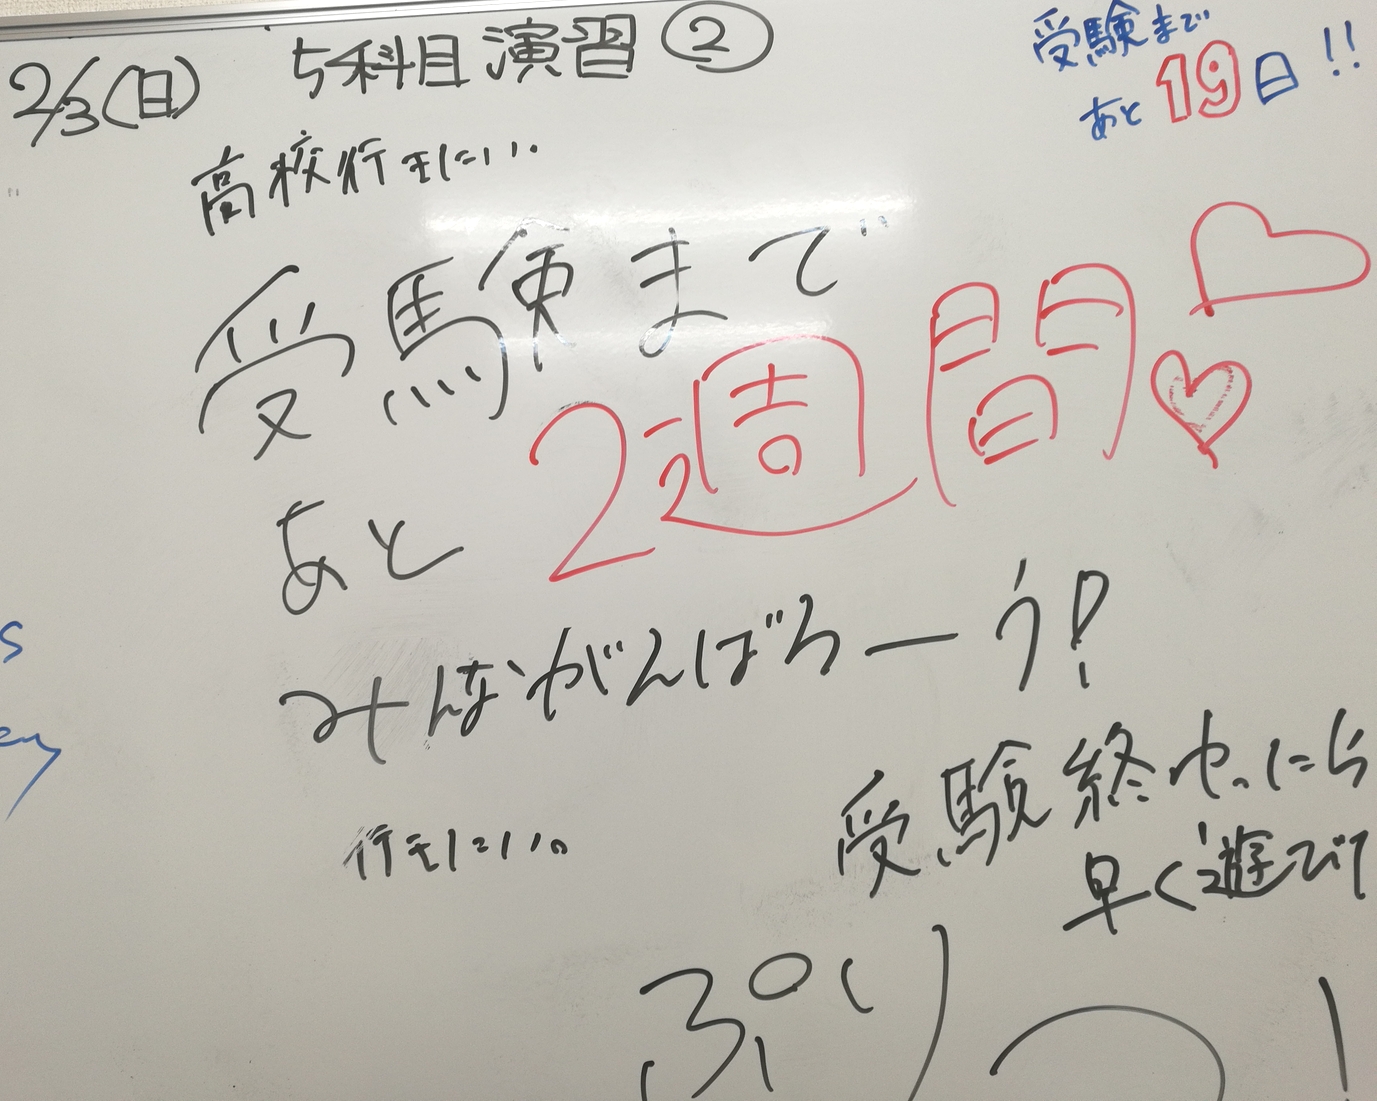 2/3(日) 5科目演習②
受験まで
あと19日!!
高校行きたい…
受験まで
あと2週間
みんながんばろーう!
受験終わったら
早く遊びた
行きたい。
ぷりっ!
s
ey